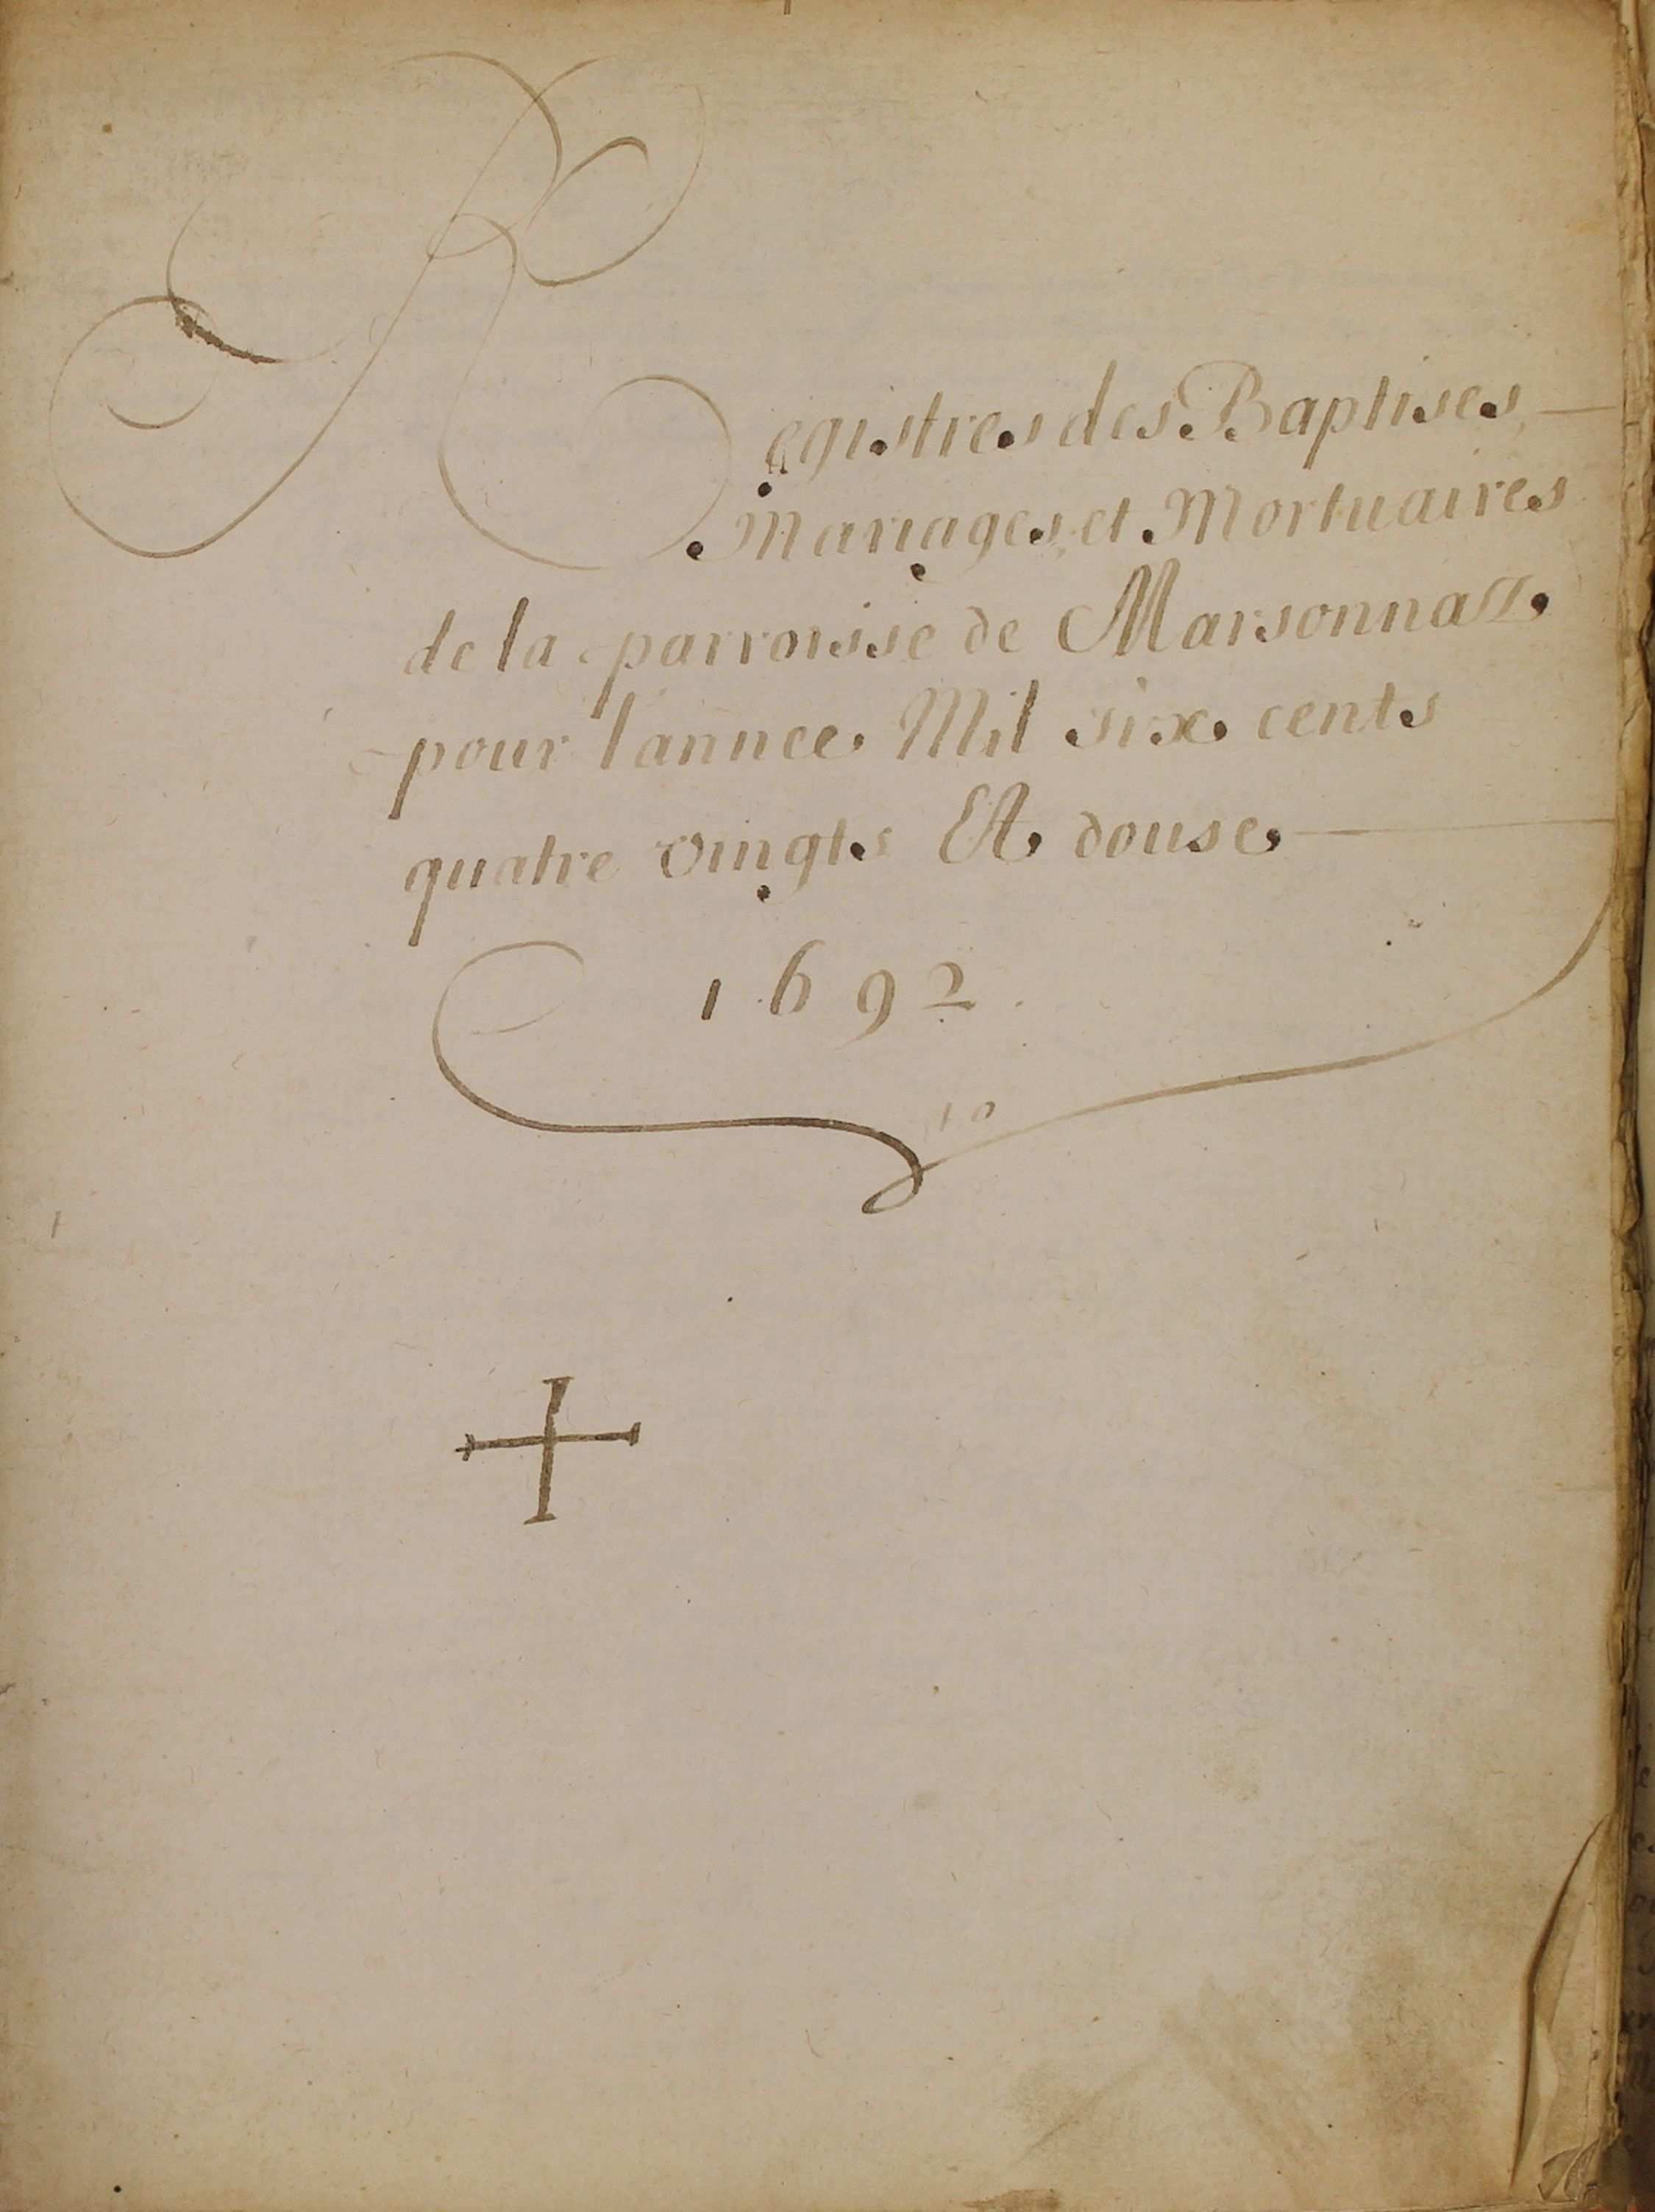 Registres des Baptises
Mariages et Mortuaires
de la parroisse de Marsonnass
pour lannee Mil six cents
quatre vingts Et douse
1692.